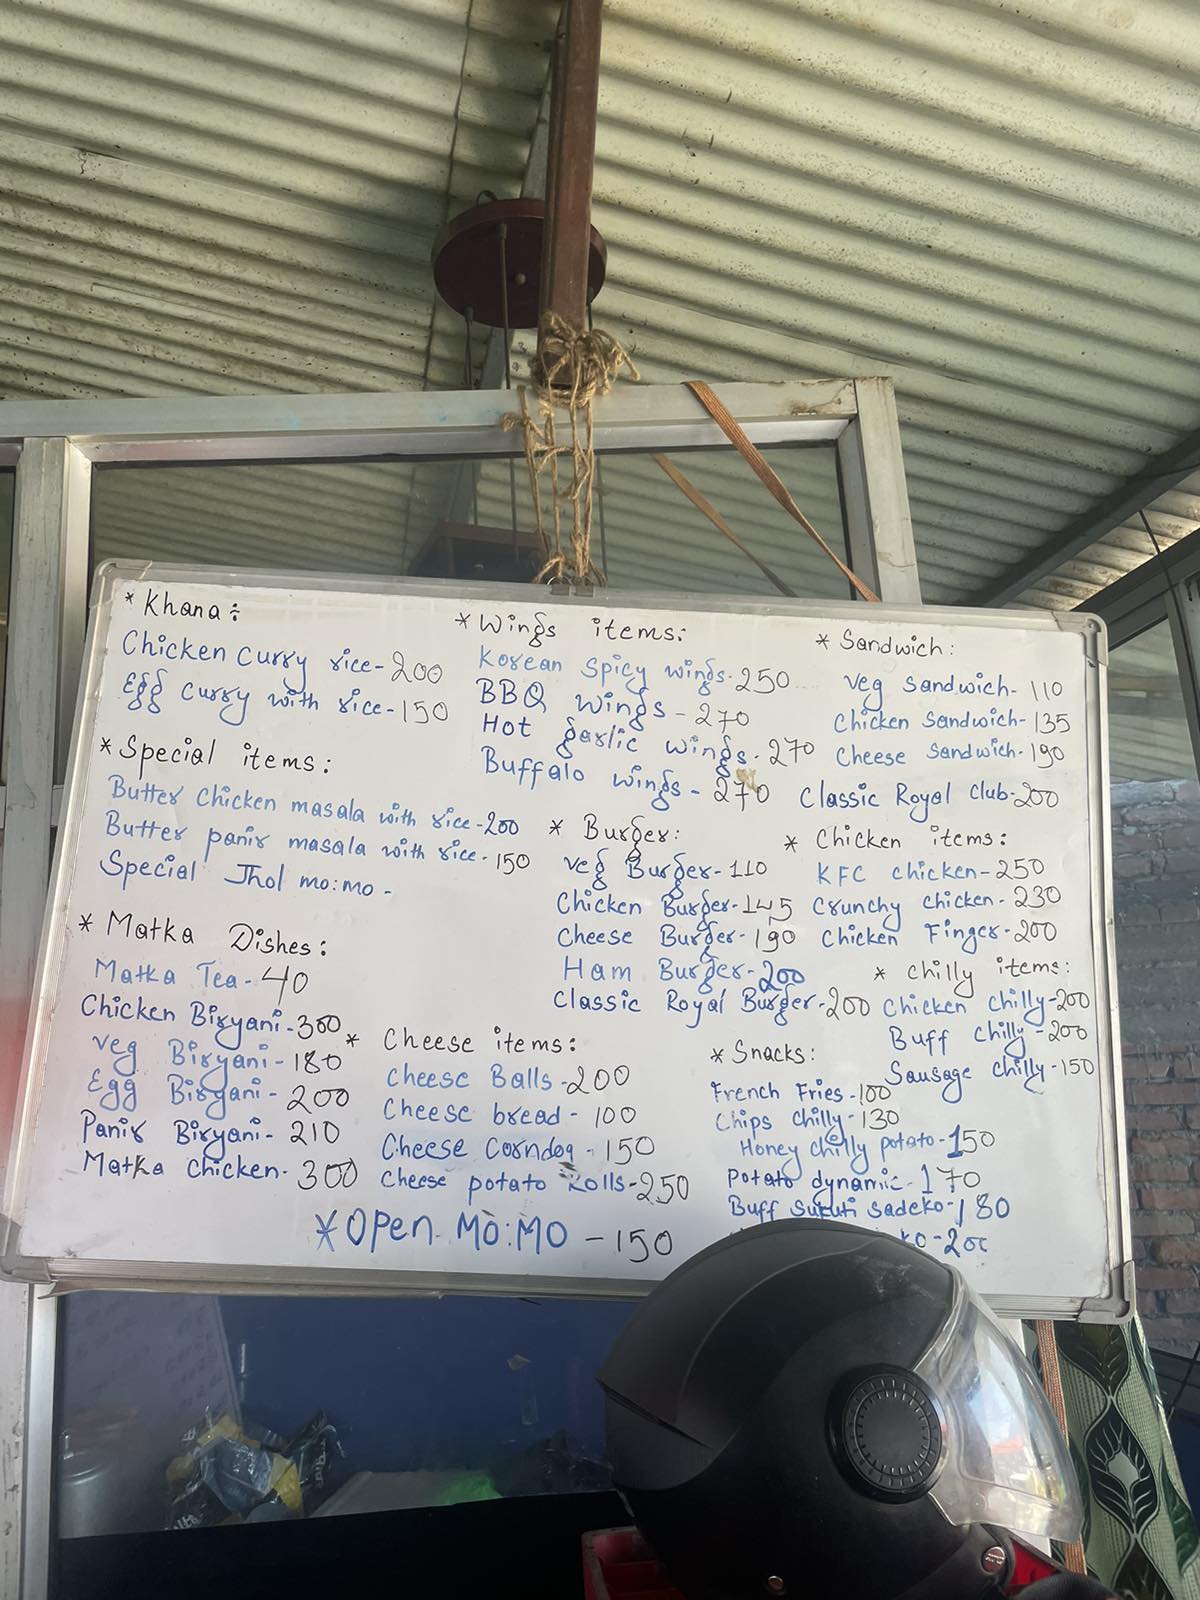 * Khana ÷
Chicken curry rice - 200
Egg curry with rice - 150
* Special items :
Butter chicken masala with rice - 200
Butter panir masala with rice - 150
Special Jhol mo:mo -
* Matka Dishes :
Matka Tea - 40
Chicken Biryani - 300
Veg Biryani - 180
Egg Biryani - 200
Panir Biryani - 210
Matka chicken - 300
* Wings items :
Korean spicy wings - 250
BBQ wings - 270
Hot garlic wings - 270
Buffalo wings - 270
* Burger :
Veg Burger - 110
Chicken Burger - 145
Cheese Burger - 190
Ham Burger - 200
Classic Royal Burger - 200
* Cheese items :
Cheese Balls - 200
Cheese bread - 100
Cheese Corndog - 150
Cheese potato Rolls - 250
* Sandwich :
Veg Sandwich - 110
Chicken Sandwich - 135
Cheese Sandwich - 190
Classic Royal Club - 200
* Chicken items :
KFC chicken - 250
Crunchy chicken - 230
Chicken Finger - 200
* Chilly items :
Chicken chilly - 200
Buff chilly - 200
Sausage chilly - 150
* Snacks :
French Fries - 100
Chips chilly - 130
Honey chilly potato - 150
Potato dynamic - 170
Buff sukuti sadeko - 180
ko - 200
* Open MO:MO - 150